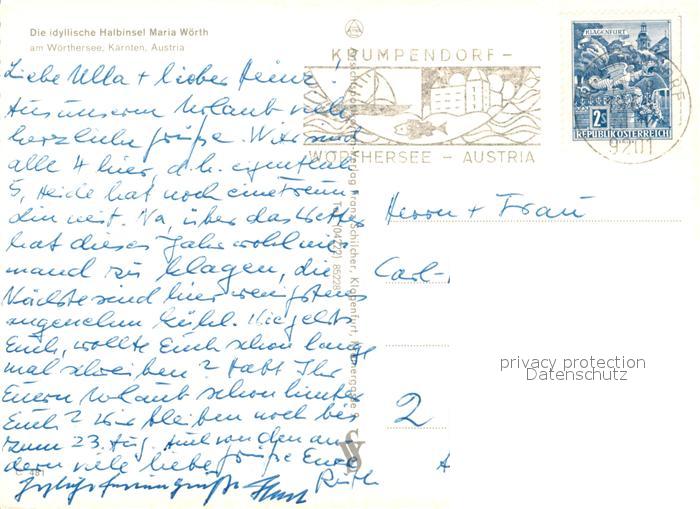 Die idyllische Halbinsel Maria Wörth
am Wörthersee, Kärnten, Austria
KRUMPENDORF –
WÖRTHERSEE – AUSTRIA
KLAGENFURT
2 S
REPUBLIK ÖSTERREICH
9201
Liebe Ulla + lieber Heinz!
Aus unserm Urlaub viele
herzliche Grüße. Wir sind
alle 4 hier, d.h. eigentlich
5, Heide hat noch eine Freun-
din mit. Na, über das Wetter
hat dieses Jahr wohl nie-
mand zu klagen, die
Nächte sind hier wenigstens
angenehm kühl. Wie geht's
Euch, wollte Euch schon lange
mal schreiben? Habt Ihr
Euern Urlaub schon hinter
Euch? Wir bleiben noch bis
zum 23. Aug. Auch von den an-
dern viele liebe Grüße Eure
Ruth
Herrn + Frau
Carl-
2
privacy protection
Datenschutz